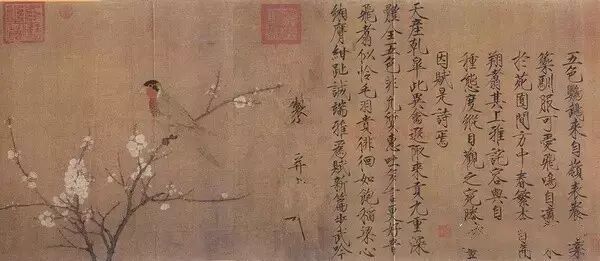 五色鸚鵡來自嶺表養禁
籞馴服可愛飛鳴自適
於苑囿間方中春繁杏開
翔翥其上雅詫容與自
種態度縱目觀之宛勝
因賦是詩焉
天產乾皋此異禽遐陬來貢九重深
體全五色非凡質惠吐多言更好音
飛翥似憐毛羽貴徘徊如飽稻粱心
緗膺紺趾誠端雅為賦新篇步武吟
製并